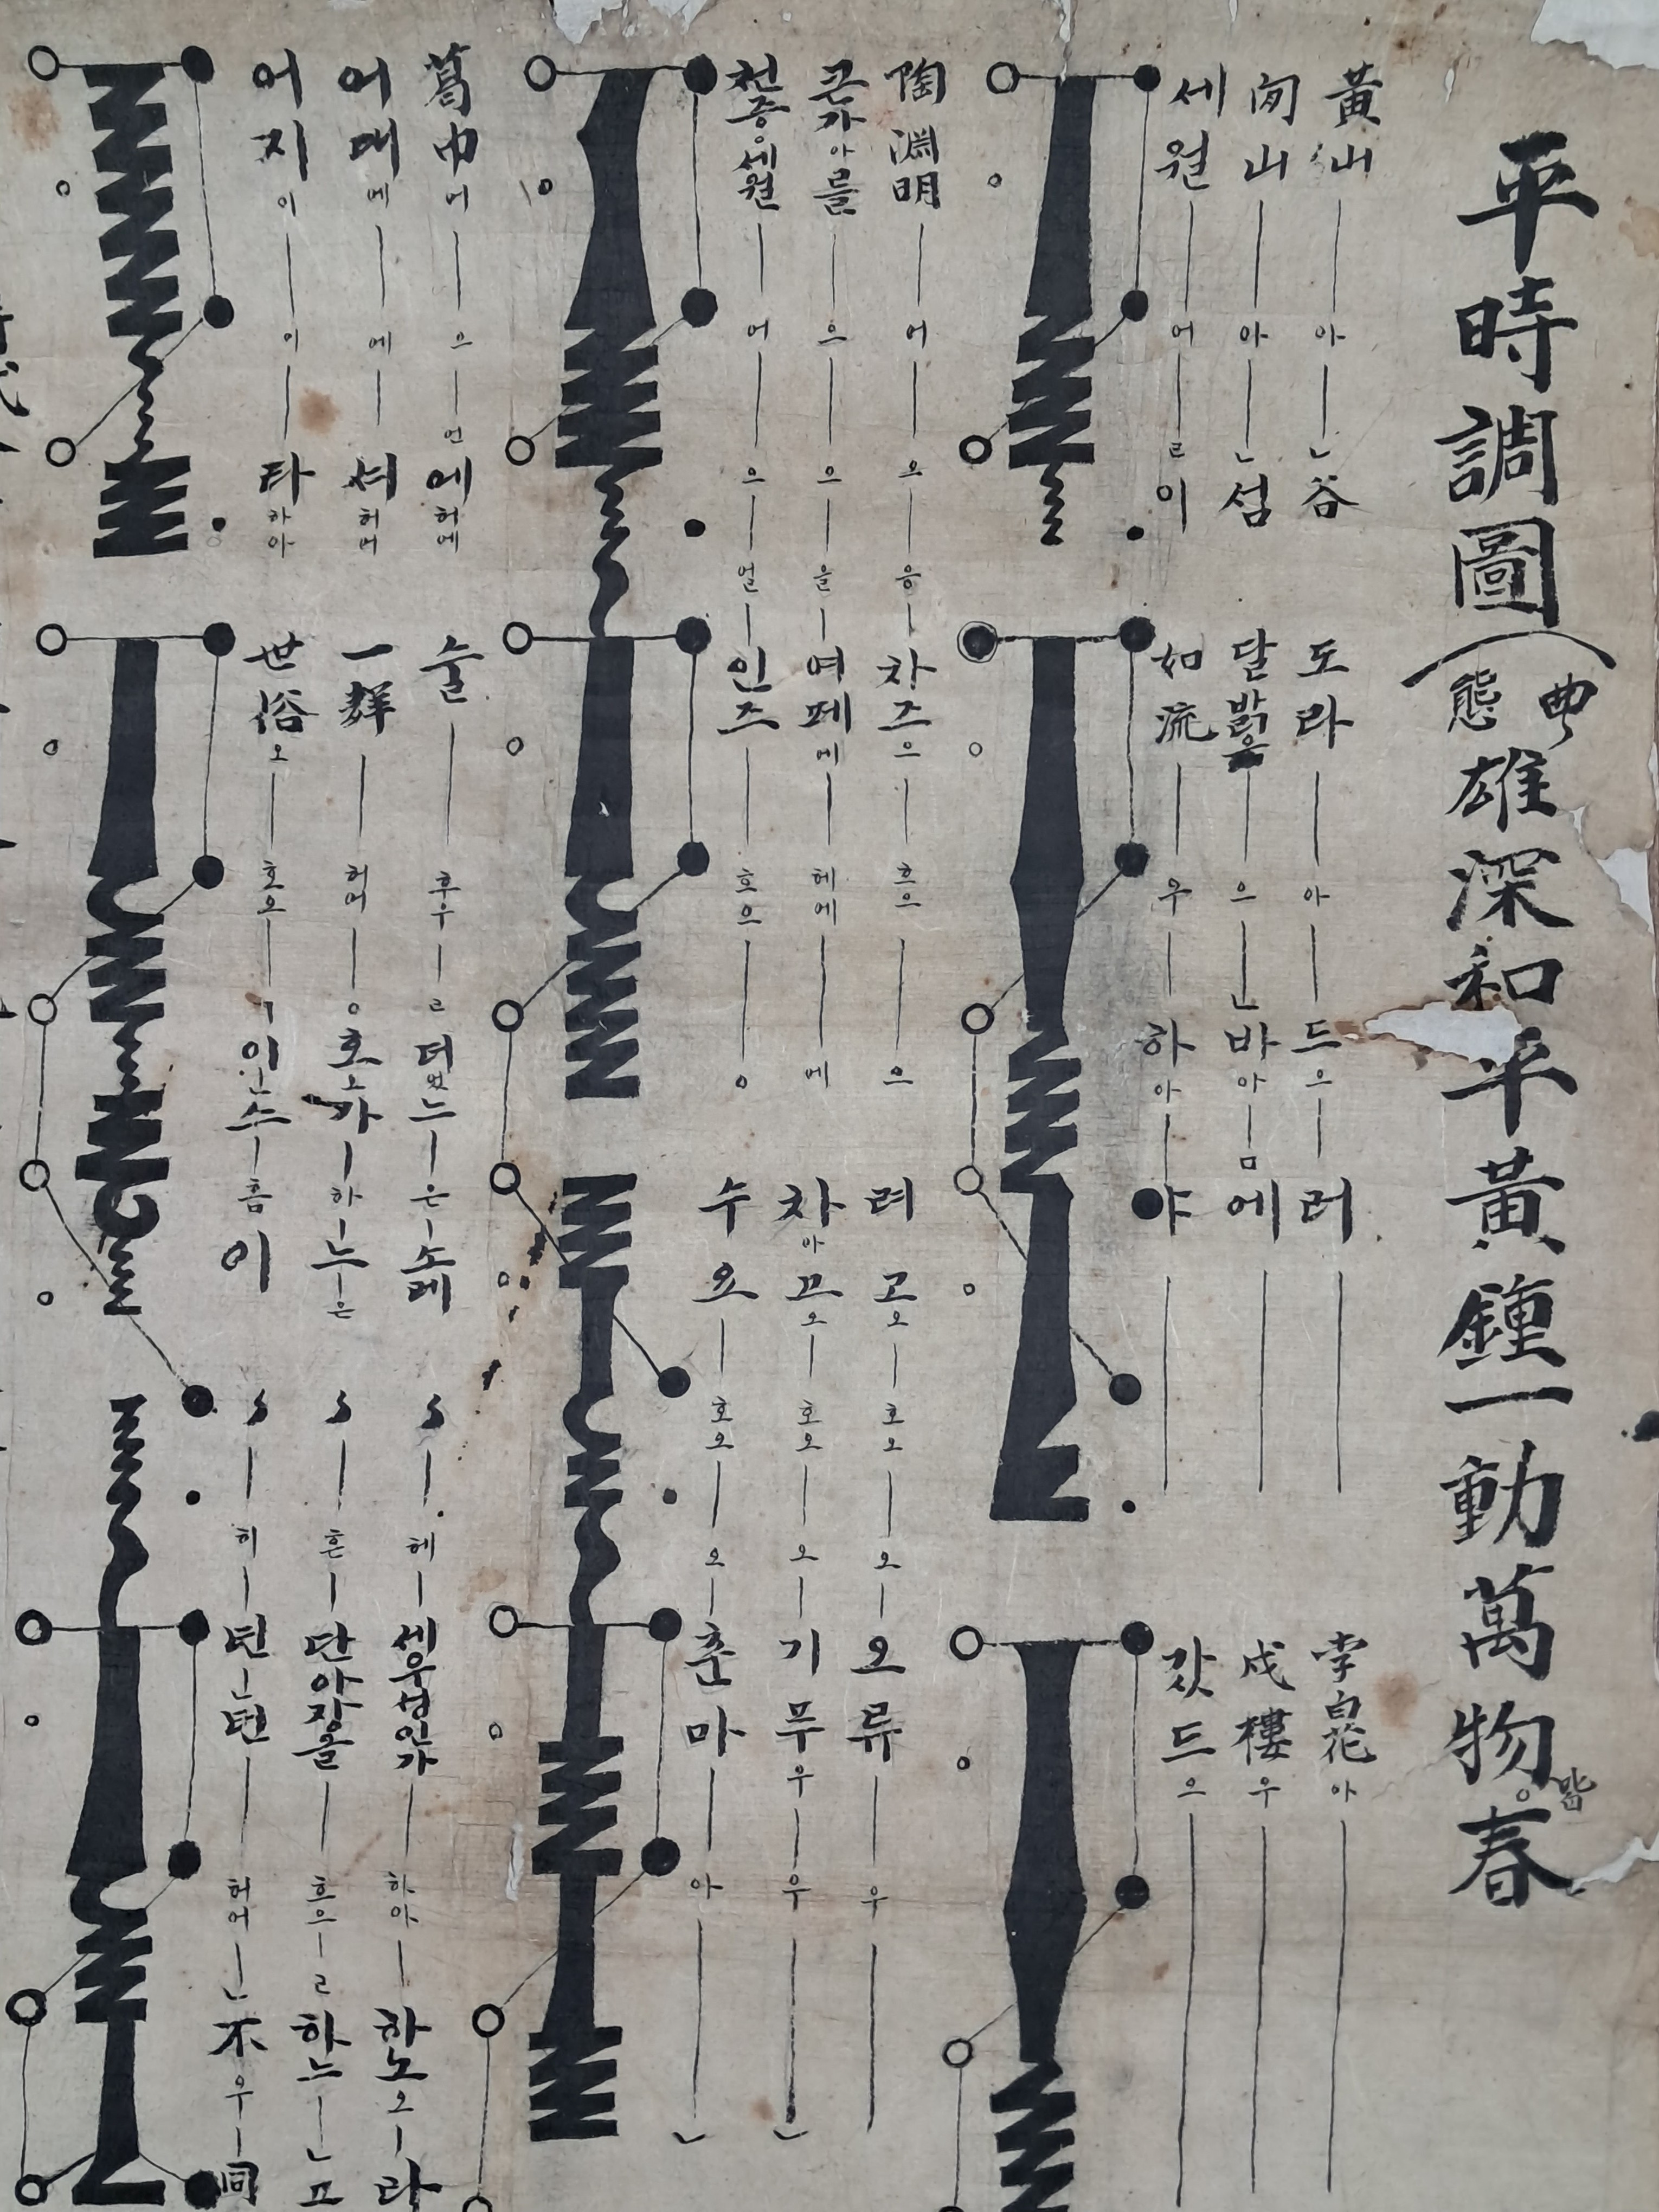 平時調圖(曲態)雄深和平黃鍾一動萬物皆春
黃山 아 ㄴ 谷 도라 아 드 으 러 李白花 아
閑山 아 ㄴ 섬 달밝은 으 ㄴ 바 아 ㅁ 에 戍樓 우
세월 어 ㄹ 이 如流 우 하 아 야 갔드 으
陶淵明 어 으 응 차즈 으 흐으 으 려고 오 호오 오 오류 우
큰가 아 를 으 으 을 여페 에 헤에 에 차 아 고 오 호오 오 기무 우 우 ㄴ
천증 으 세월 어 으 얼 인즈 흐으 으 수요 호오 오 춘마 아 ㄴ
葛巾 어 으 언 에 허에 술 후우 ㄹ 더 느 은 소레 헤 세우성인가 하아 하노 오 라
어매 에 에 셔 허어 一群 허어 ㅇ 호 오 가 하 느 은 흔 단아자올 흐으 ㄹ 하느 ㄴ 고
어지 이 이 타 하아 世俗 오 호오 ㄱ 이 ㄴ 스 흠 이 히 턴 ㄴ 턴 허어 ㄴ 不 우 同